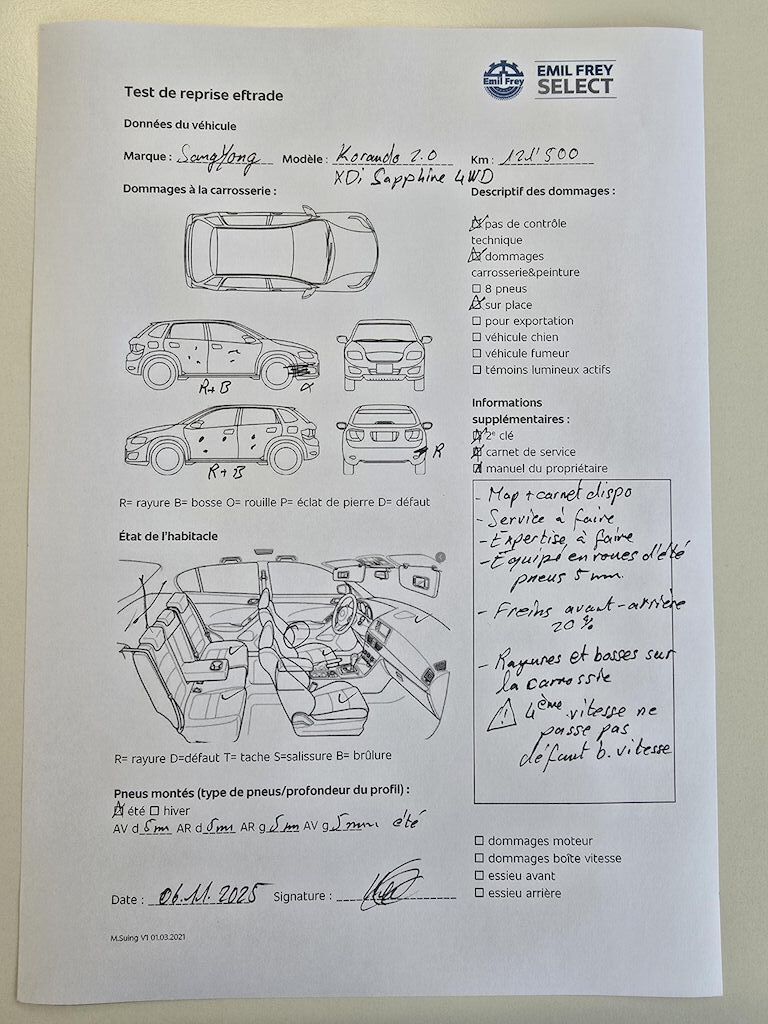 Emil Frey
EMIL FREY
SELECT
Test de reprise eftrade
Données du véhicule
Marque : SangYong Modèle : Korando 2.0 Km : 121'500
XDi Sapphire 4WD
Dommages à la carrosserie :
Descriptif des dommages :
pas de contrôle
technique
dommages
carrosserie&peinture
8 pneus
sur place
pour exportation
véhicule chien
véhicule fumeur
témoins lumineux actifs
R+B
R
R+B
R= rayure B= bosse O= rouille P= éclat de pierre D= défaut
Informations
supplémentaires :
2e clé
carnet de service
manuel du propriétaire
- Map + carnet dispo
- Service à faire
- Expertise à faire
- Equipé en roues d'été
pneus 5 mm.
- Freins avant-arrière
20 %
- Rayures et bosses sur
la carrossie
4ème vitesse ne
passe pas
défaut b. vitesse
État de l'habitacle
R= rayure D=défaut T= tache S=salissure B= brûlure
Pneus montés (type de pneus/profondeur du profil) :
été hiver
AV d 5 mm AR d 5 mm AR g 5 mm AV g 5 mm été
dommages moteur
dommages boîte vitesse
essieu avant
essieu arrière
Date : 06.11.2025 Signature :
M.Suing V1 01.03.2021